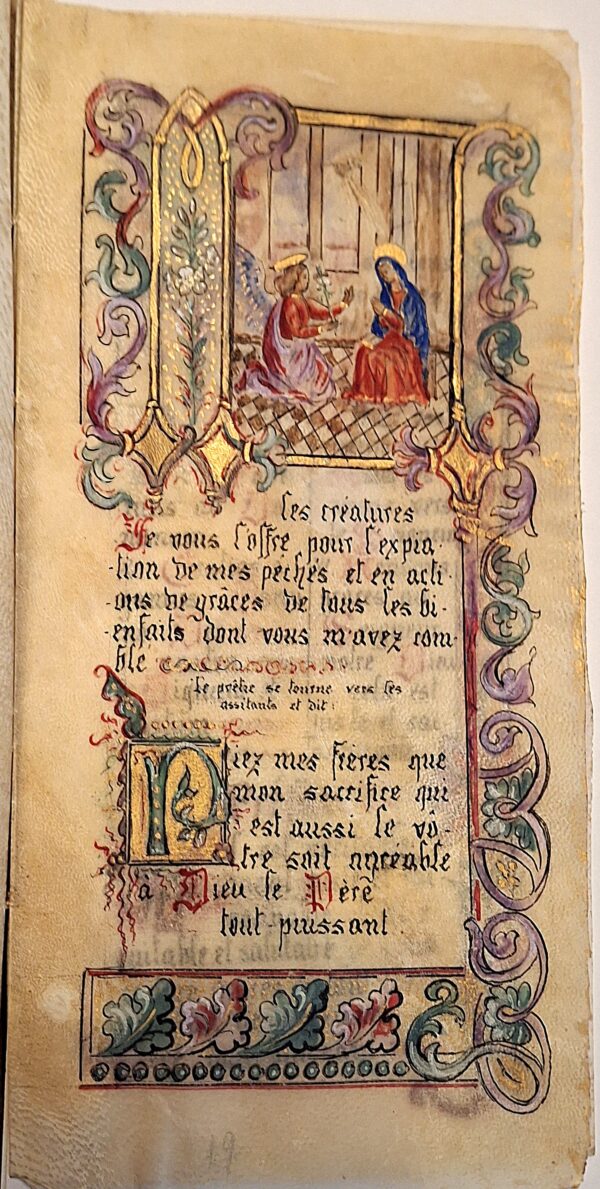 les créatures
Je vous l'offre pour l'expia-
-tion de mes péchés et en acti-
-ons de grâces de tous les bi-
-enfaits dont vous m'avez com-
-blé
Le prêtre se tourne vers les
assitants et dit :
Priez mes frères que
mon sacrifice qui
est aussi le vô-
tre soit agréable
à Dieu le Père
tout-puissant
19